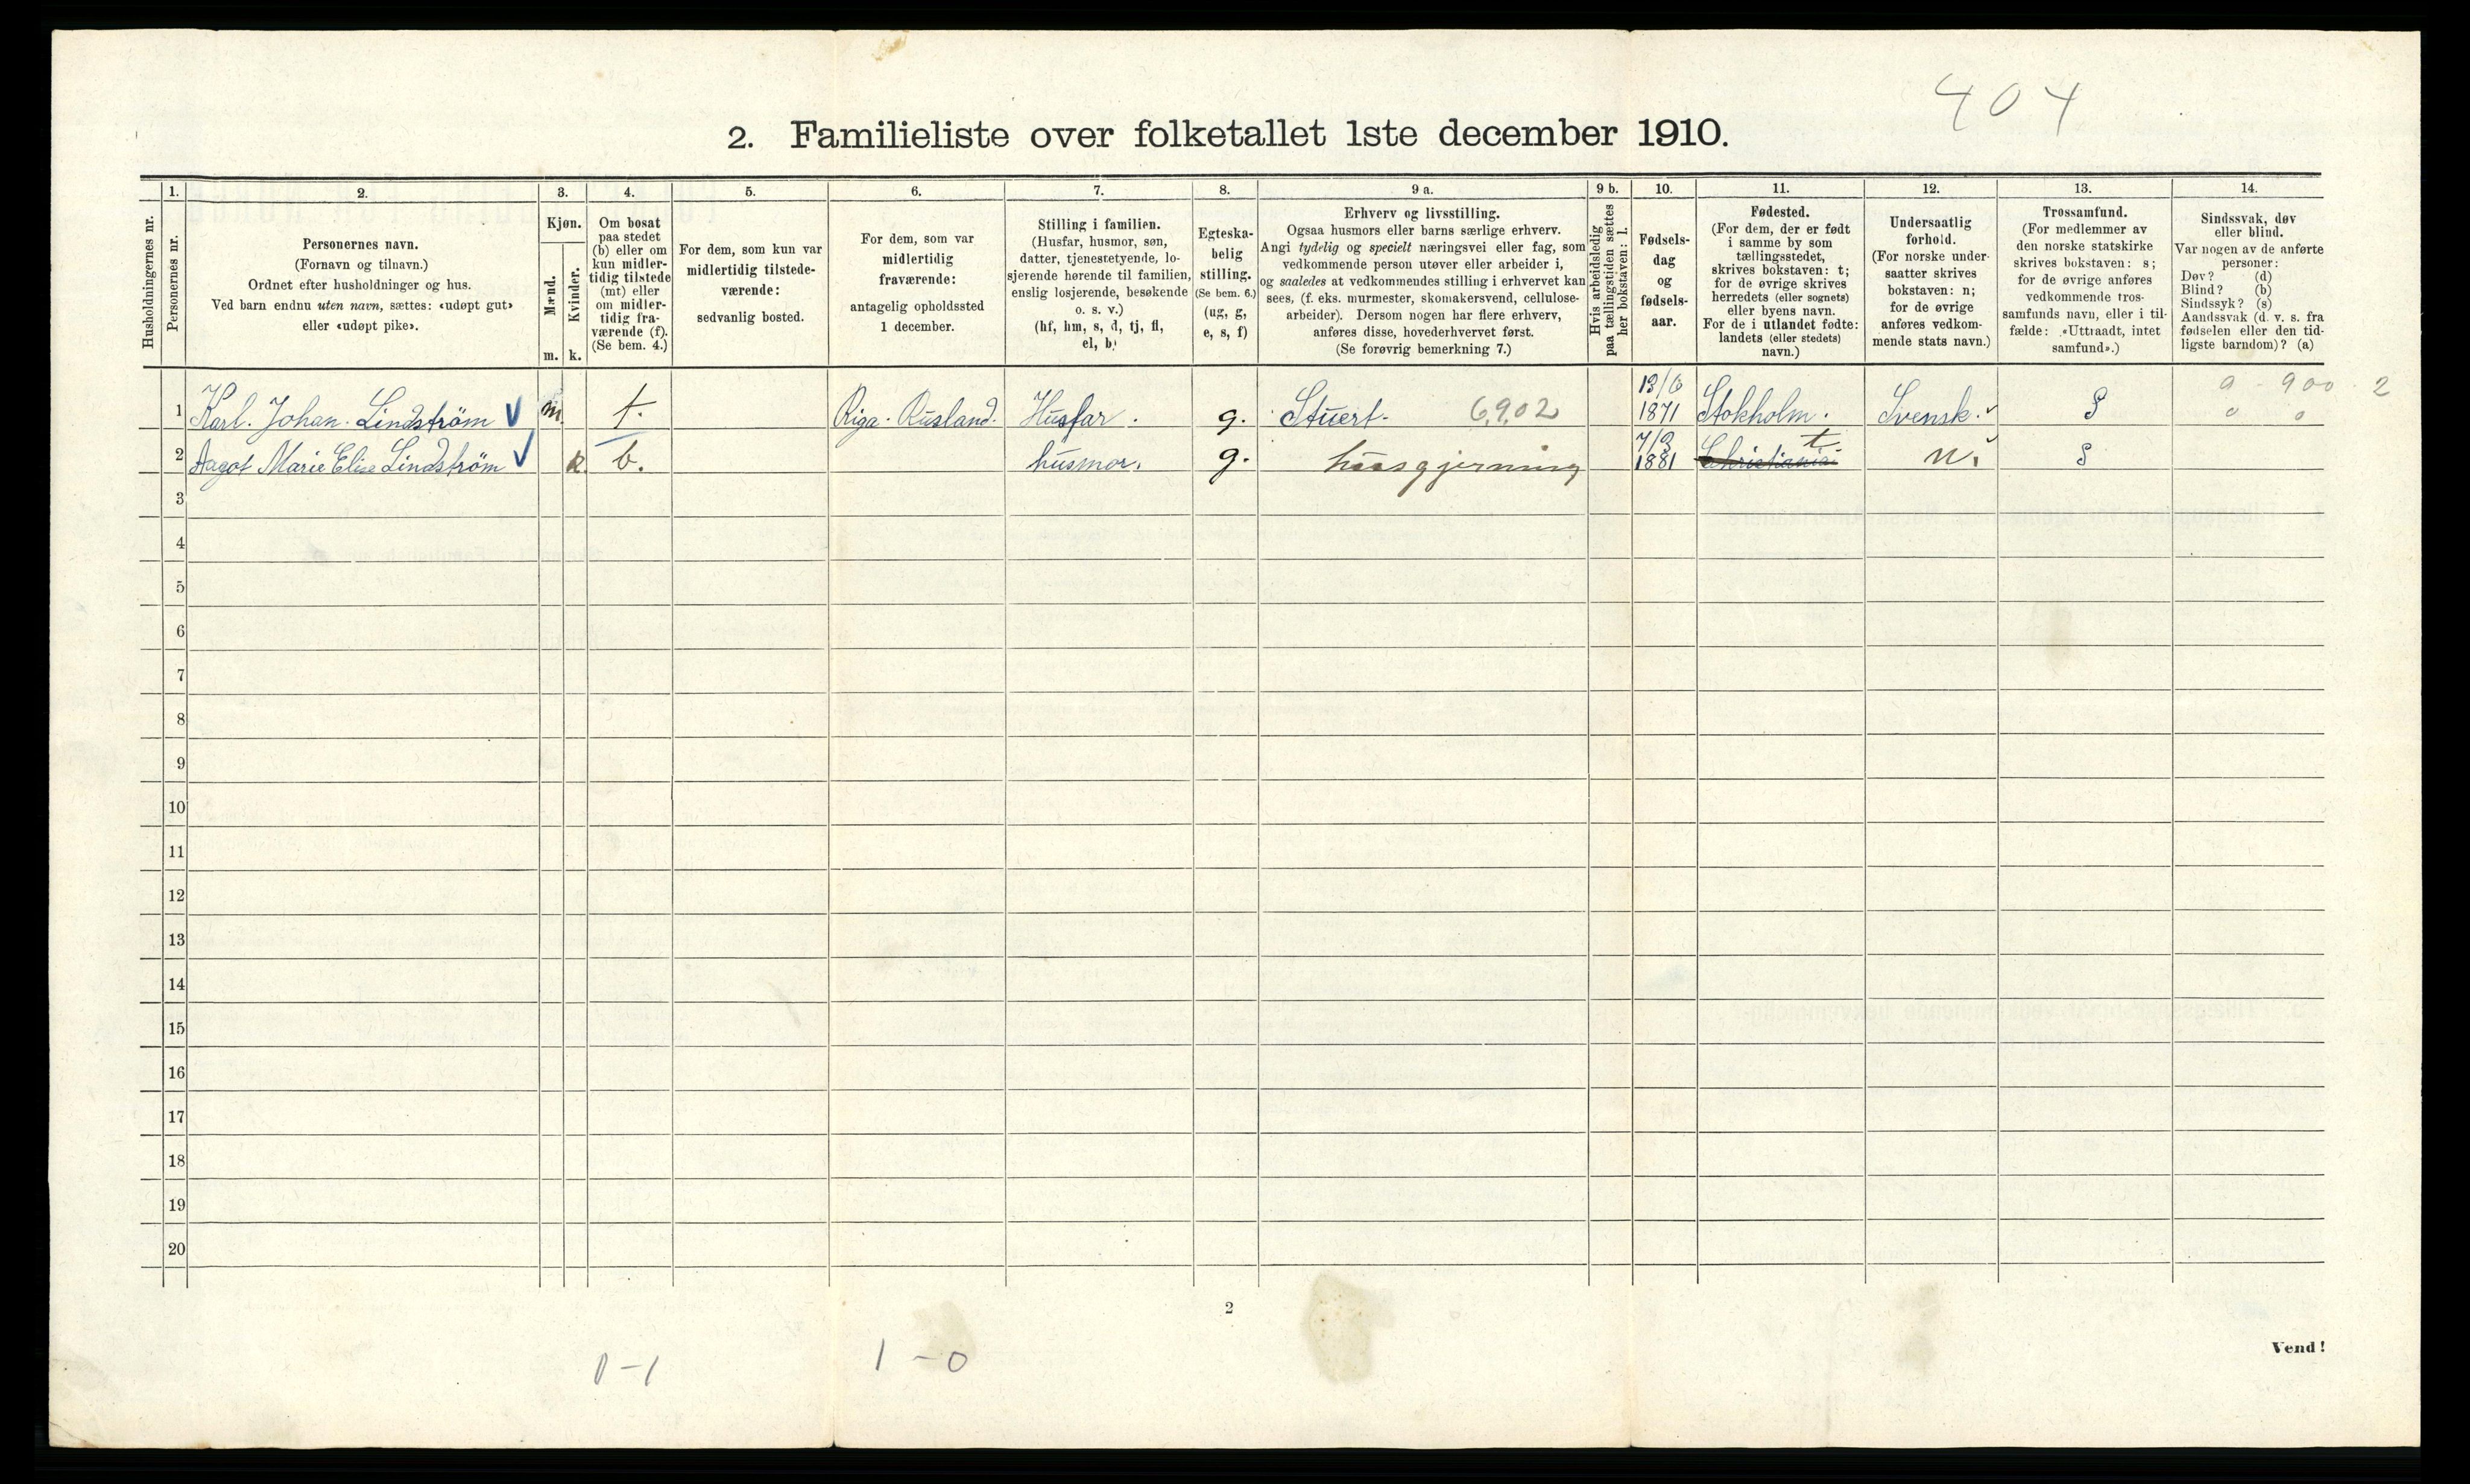 404
2. Familieliste over folketallet 1ste december 1910.
Husholdningernes nr.
1.
Personernes nr.
2.
Personernes navn.
(Fornavn og tilnavn.)
Ordnet efter husholdninger og hus.
Ved barn endnu uten navn, sættes: «udøpt gut»
eller «udøpt pike».
3.
Kjøn.
Mænd.
Kvinder.
m.
k.
4.
Om bosat
paa stedet
(b) eller om
kun midler-
tidig tilstede
(mt) eller
om midler-
tidig fra-
værende (f).
(Se bem. 4.)
5.
For dem, som kun var
midlertidig tilstede-
værende:
sedvanlig bosted.
6.
For dem, som var
midlertidig
fraværende:
antagelig opholdssted
1 december.
7.
Stilling i familien.
(Husfar, husmor, søn,
datter, tjenestetyende, lo-
sjerende hørende til familien,
enslig losjerende, besøkende
o. s. v.)
(hf, hm, s, d, tj, fl,
el, b)
8.
Egteska-
belig
stilling.
(Se bem. 6.)
(ug, g,
e, s, f)
9 a.
Erhverv og livsstilling.
Ogsaa husmors eller barns særlige erhverv.
Angi tydelig og specielt næringsvei eller fag, som
vedkommende person utøver eller arbeider i,
og saaledes at vedkommendes stilling i erhvervet kan
sees, (f. eks. murmester, skomakersvend, cellulose-
arbeider). Dersom nogen har flere erhverv,
anføres disse, hovederhvervet først.
(Se forøvrig bemerkning 7.)
9 b.
Hvis arbeidsledig
paa tællingstiden sættes
her bokstaven: l.
10.
Fødsels-
dag
og
fødsels-
aar.
11.
Fødested.
(For dem, der er født
i samme by som
tællingsstedet,
skrives bokstaven: t;
for de øvrige skrives
herredets (eller sognets)
eller byens navn.
For de i utlandet fødte:
landets (eller stedets)
navn.)
12.
Undersaatlig
forhold.
(For norske under-
saatter skrives
bokstaven: n;
for de øvrige
anføres vedkom-
mende stats navn.)
13.
Trossamfund.
(For medlemmer av
den norske statskirke
skrives bokstaven: s;
for de øvrige anføres
vedkommende tros-
samfunds navn, eller i til-
fælde: «Uttraadt, intet
samfund».)
14.
Sindssvak, døv
eller blind.
Var nogen av de anførte
personer:
Døv? (d)
Blind? (b)
Sindssyk? (s)
Aandssvak (d. v. s. fra
fødselen eller den tid-
ligste barndom)? (a)
1 Karl. Johan. Lindström m. f. Riga. Rusland. Husfar. g. Stuert. 6902 13/6 1871 Stokholm. Svensk. S 0 - 900 - 2
2 Aagot Marie Elise Lindström k b. husmor. g. husgjerning 1881 Christiania t n. S
3
4
5
6
7
8
9
10
11
12
13
14
15
16
17
18
19
20
2
Vend!
0-1
1-0